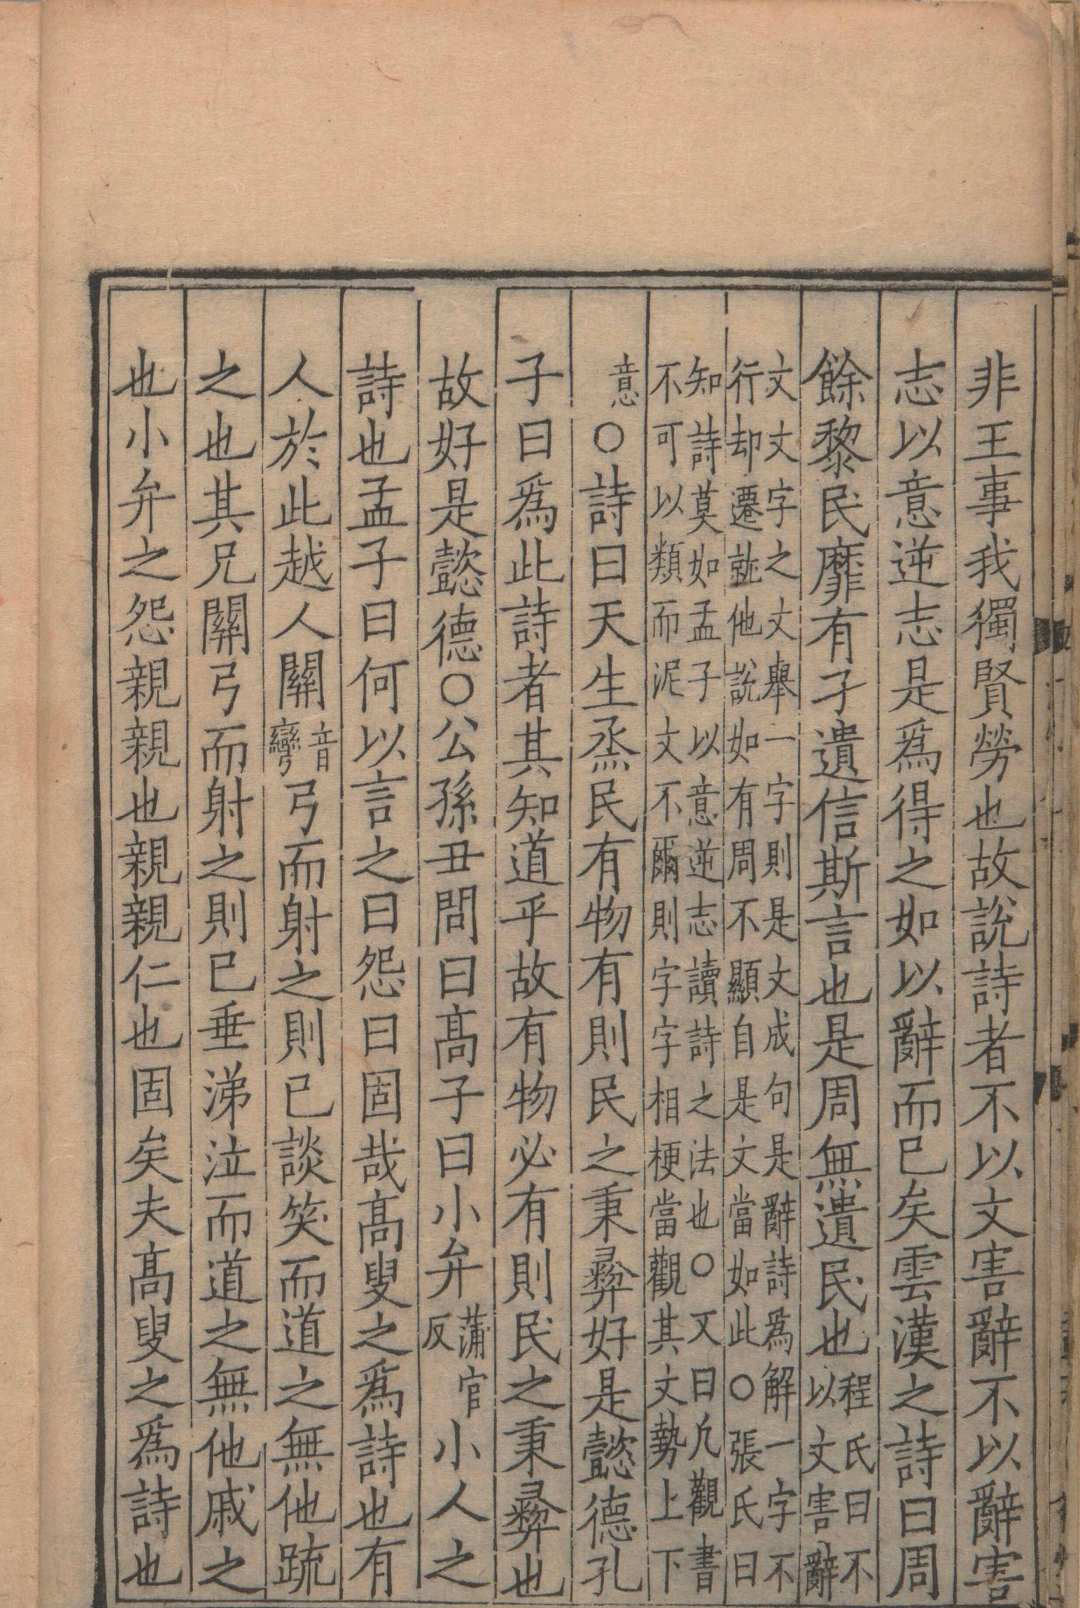 非王事我獨賢勞也故說詩者不以文害辭不以辭害
志以意逆志是爲得之如以辭而已矣雲漢之詩曰周
餘黎民靡有孑遺信斯言也是周無遺民也程氏曰不以文害辭
文文字之文舉一字則是文成句是辭詩爲解一字不
行却遷就他說如有周不顯自是文當如此○張氏曰
知詩莫如孟子以意逆志讀詩之法也○又曰凡觀書
不可以類而泥文不爾則字字相梗當觀其文勢上下
意○詩曰天生烝民有物有則民之秉彝好是懿德孔
子曰爲此詩者其知道乎故有物必有則民之秉彝也
故好是懿德○公孫丑問曰髙子曰小弁蒲官反小人之
詩也孟子曰何以言之曰怨曰固哉髙叟之爲詩也有
人於此越人關音彎弓而射之則已談笑而道之無他疏
之也其兄關弓而射之則已垂涕泣而道之無他戚之
也小弁之怨親親也親親仁也固矣夫髙叟之爲詩也